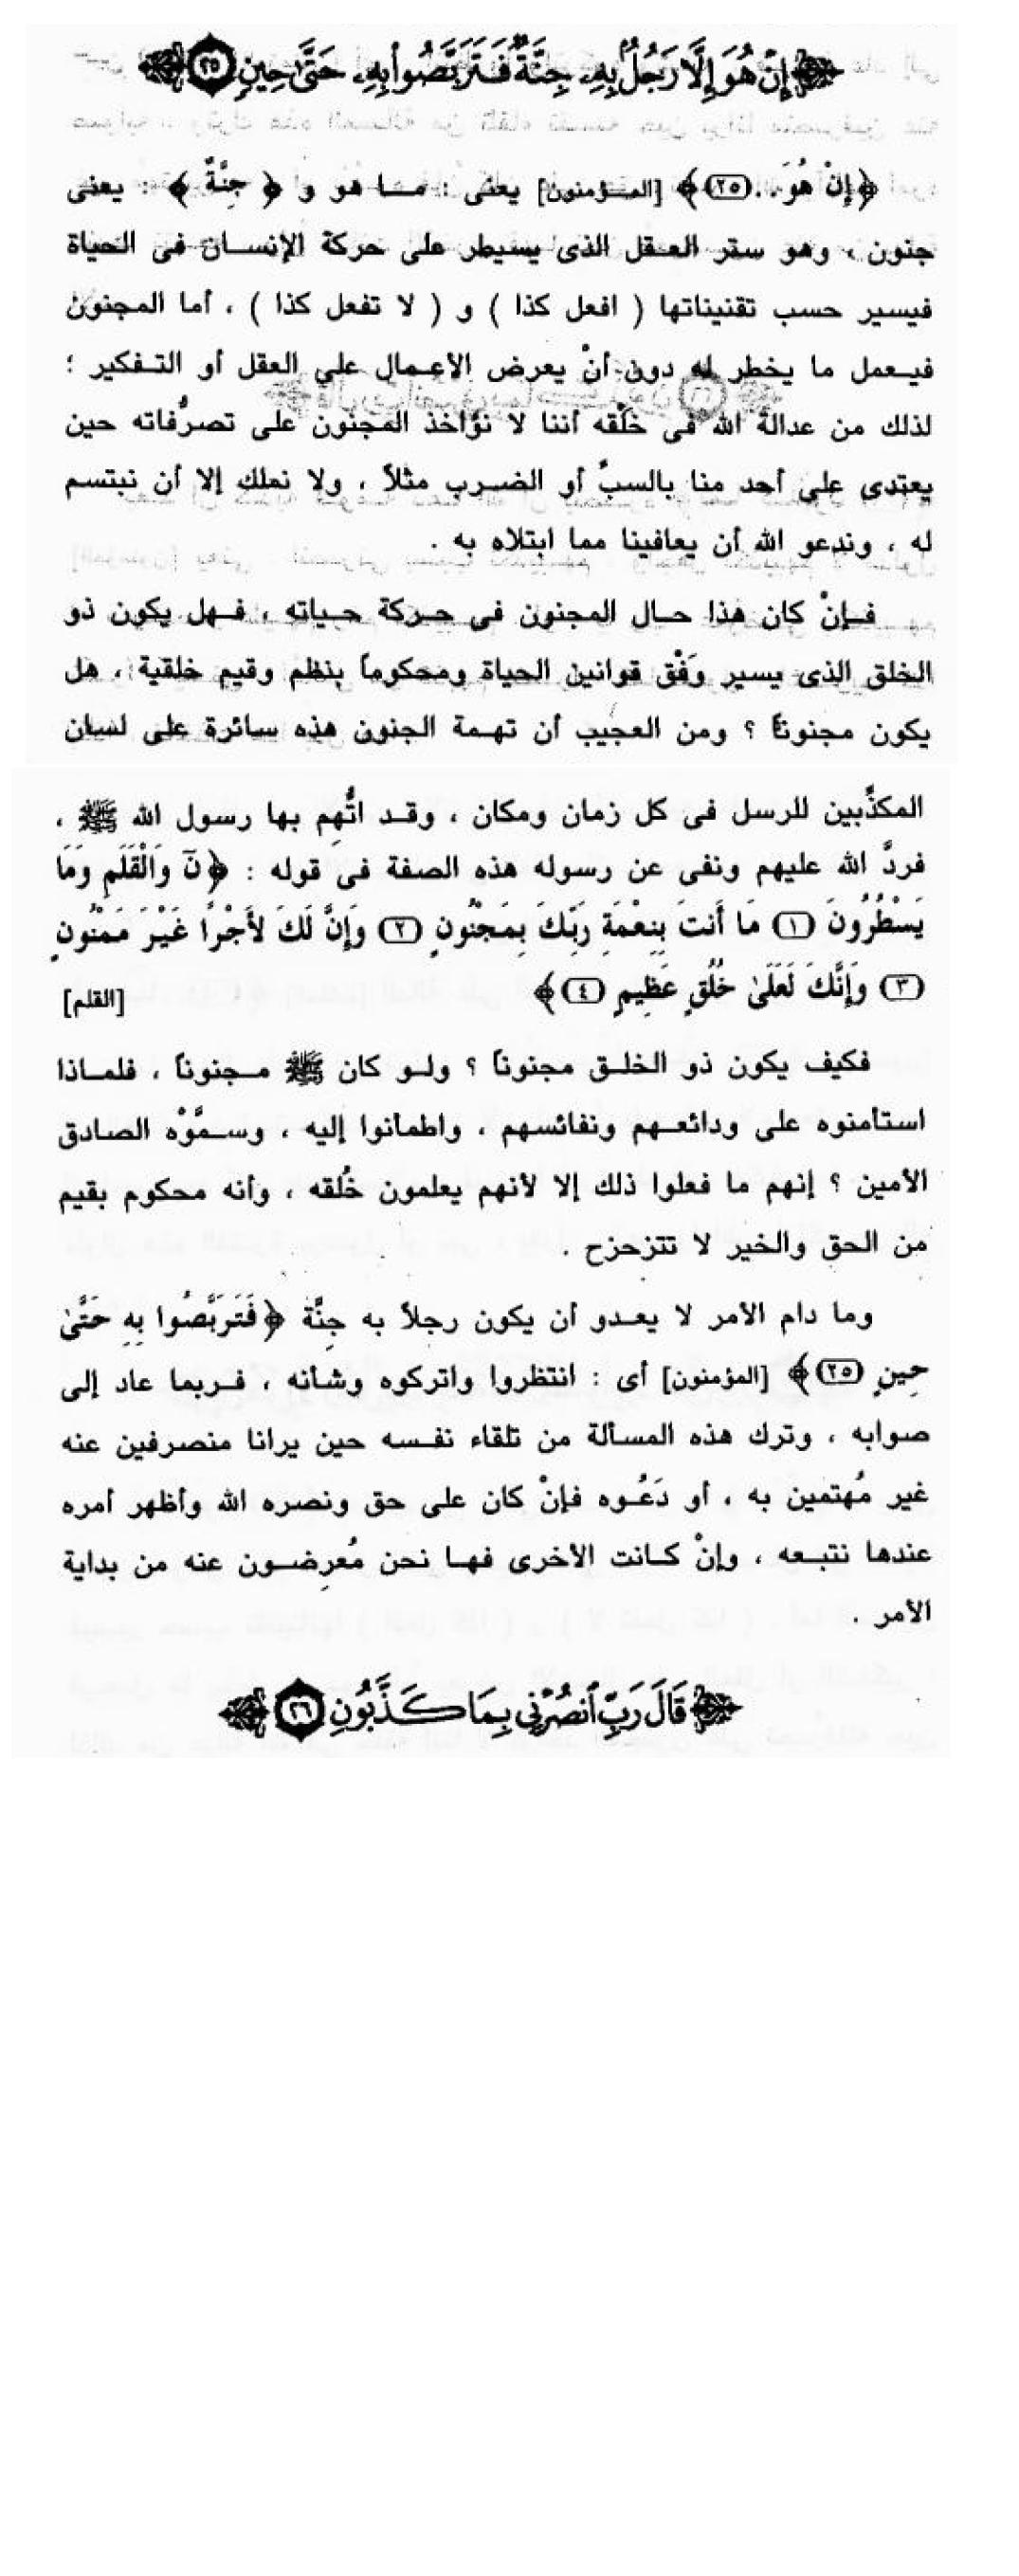 إِنْ هُوَ إِلَّا رَجُلٌ بِهِ جِنَّةٌ فَتَرَبَّصُوا بِهِ حَتَّىٰ حِينٍ ٢٥
﴿إِنْ هُوَ.. (٢٥)﴾ [المؤمنون] يعنى : ما هو و ﴿ جِنَّةٌ ﴾ : يعنى
جنون ، وهو ستر العقل الذى يسيطر على حركة الإنسان فى الحياة
فيسير حسب تقنيناتها ( افعل كذا ) و ( لا تفعل كذا ) ، أما المجنون
فيعمل ما يخطر له دون أنْ يعرض الأعمال على العقل أو التفكير ؛
لذلك من عدالة الله فى خلْقه أننا لا نؤاخذ المجنون على تصرُّفاته حين
يعتدى على أحد منا بالسبِّ أو الضرب مثلاً ، ولا نملك إلا أن نبتسم
له ، وندعو الله أن يعافينا مما ابتلاه به .
فإنْ كان هذا حال المجنون فى حركة حياته ، فهل يكون ذو
الخلق الذى يسير وَفْق قوانين الحياة ومحكوماً بنظم وقيم خلقية ، هل
يكون مجنوناً ؟ ومن العجيب أن تهمة الجنون هذه سائرة على لسان
المكذِّبين للرسل فى كل زمان ومكان ، وقد اتُّهِم بها رسول الله ﷺ ،
فردَّ الله عليهم ونفى عن رسوله هذه الصفة فى قوله : ﴿نٓ وَالْقَلَمِ وَمَا
يَسْطُرُونَ (١) مَا أَنتَ بِنِعْمَةِ رَبِّكَ بِمَجْنُونٍ (٢) وَإِنَّ لَكَ لأَجْرًا غَيْرَ مَمْنُونٍ
(٣) وَإِنَّكَ لَعَلَىٰ خُلُقٍ عَظِيمٍ (٤)﴾ [القلم]
فكيف يكون ذو الخلق مجنوناً ؟ ولو كان ﷺ مجنوناً ، فلماذا
استأمنوه على ودائعهم ونفائسهم ، واطمأنوا إليه ، وسمَّوْه الصادق
الأمين ؟ إنهم ما فعلوا ذلك إلا لأنهم يعلمون خُلقه ، وأنه محكوم بقيم
من الحق والخير لا تتزحزح .
وما دام الأمر لا يعدو أن يكون رجلاً به جِنَّة ﴿فَتَرَبَّصُوا بِهِ حَتَّىٰ
حِينٍ (٢٥)﴾ [المؤمنون] أى : انتظروا واتركوه وشأنه ، فربما عاد إلى
صوابه ، وترك هذه المسألة من تلقاء نفسه حين يرانا منصرفين عنه
غير مُهتمين به ، أو دَعُوه فإنْ كان على حق ونصره الله وأظهر أمره
عندها نتبعه ، وإنْ كانت الأخرى فها نحن مُعرِضون عنه من بداية
الأمر .
قَالَ رَبِّ ٱنصُرْنِي بِمَا كَذَّبُونِ ٢٦